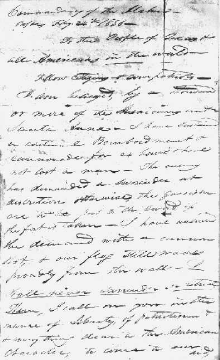 Commandancy of the Alamo
Bejar Fby 24th 1836
To the People of Texas &
all Americans in the world
Fellow Citizens & compatriots
I am besieged, by a thousand
or more of the Mexicans under
Santa Anna - I have sustained
a continual Bombardment &
cannonade for 24 hours & have
not lost a man - The enemy
has demanded a surrender at
discretion, otherwise, the garrison
are to be put to the sword, if
the fort is taken - I have answered
the demand with a cannon
shot, & our flag still waves
proudly from the walls - I
shall never surrender or retreat
Then, I call on you in the
name of Liberty, of patriotism &
& every thing dear to the American
character, to come to our aid